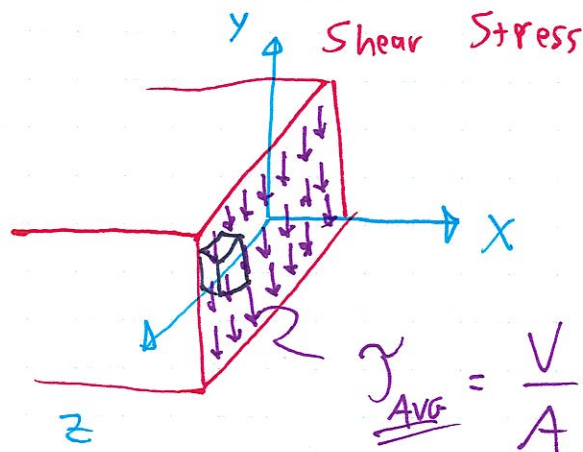 Y
Shear Stress
X
Z
τ_AVG = V/A